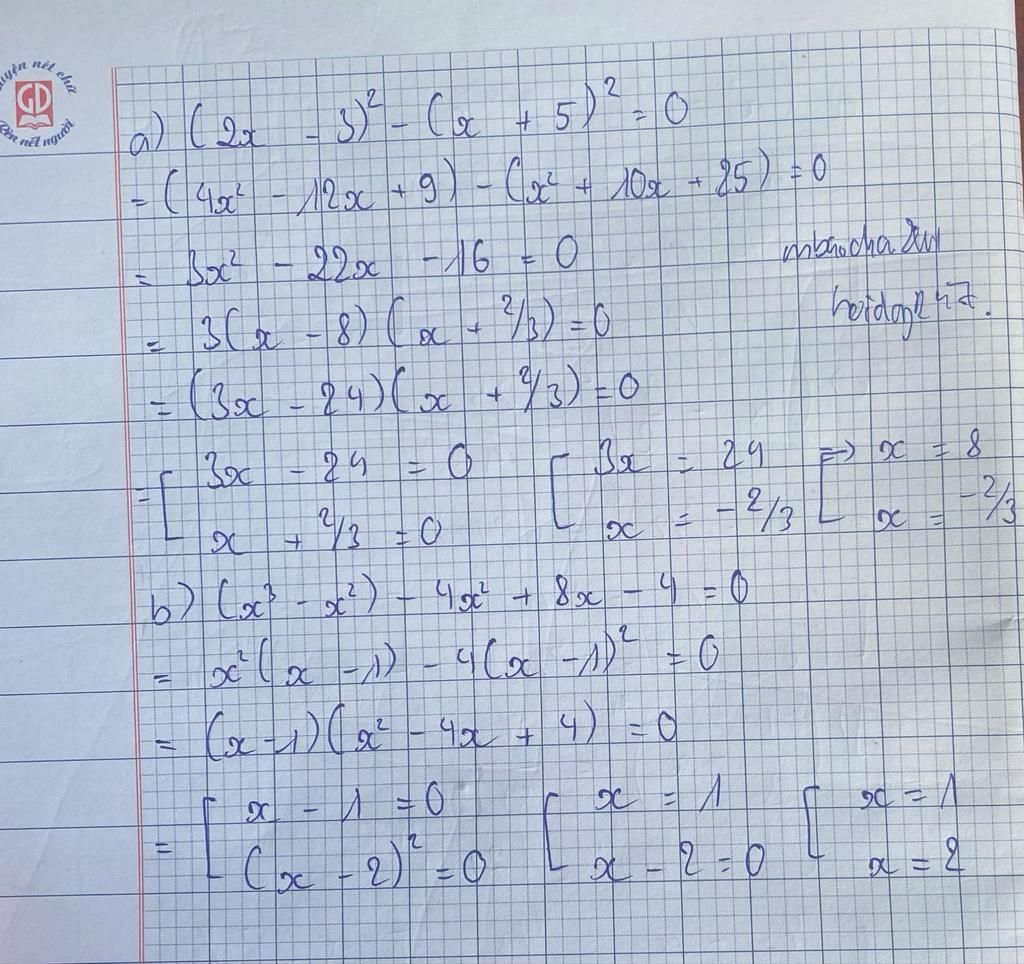 Luyện nét chữ
GD
Rèn nết người
a) (2x - 3)² - (x + 5)² = 0
= (4x² - 12x + 9) - (x² + 10x + 25) = 0
= 3x² - 22x - 16 = 0
= 3(x - 8)(x + 2/3) = 0
= (3x - 24)(x + 2/3) = 0
= [ 3x - 24 = 0 [ 3x = 24 [ => x = 8
x + 2/3 = 0 x = -2/3 x = -2/3
b) (x³ - x²) - 4x² + 8x - 4 = 0
= x²(x - 1) - 4(x - 1)² = 0
= (x - 1)(x² - 4x + 4) = 0
= [ x - 1 = 0 [ x = 1 [ x = 1
(x - 2)² = 0 x - 2 = 0 x = 2